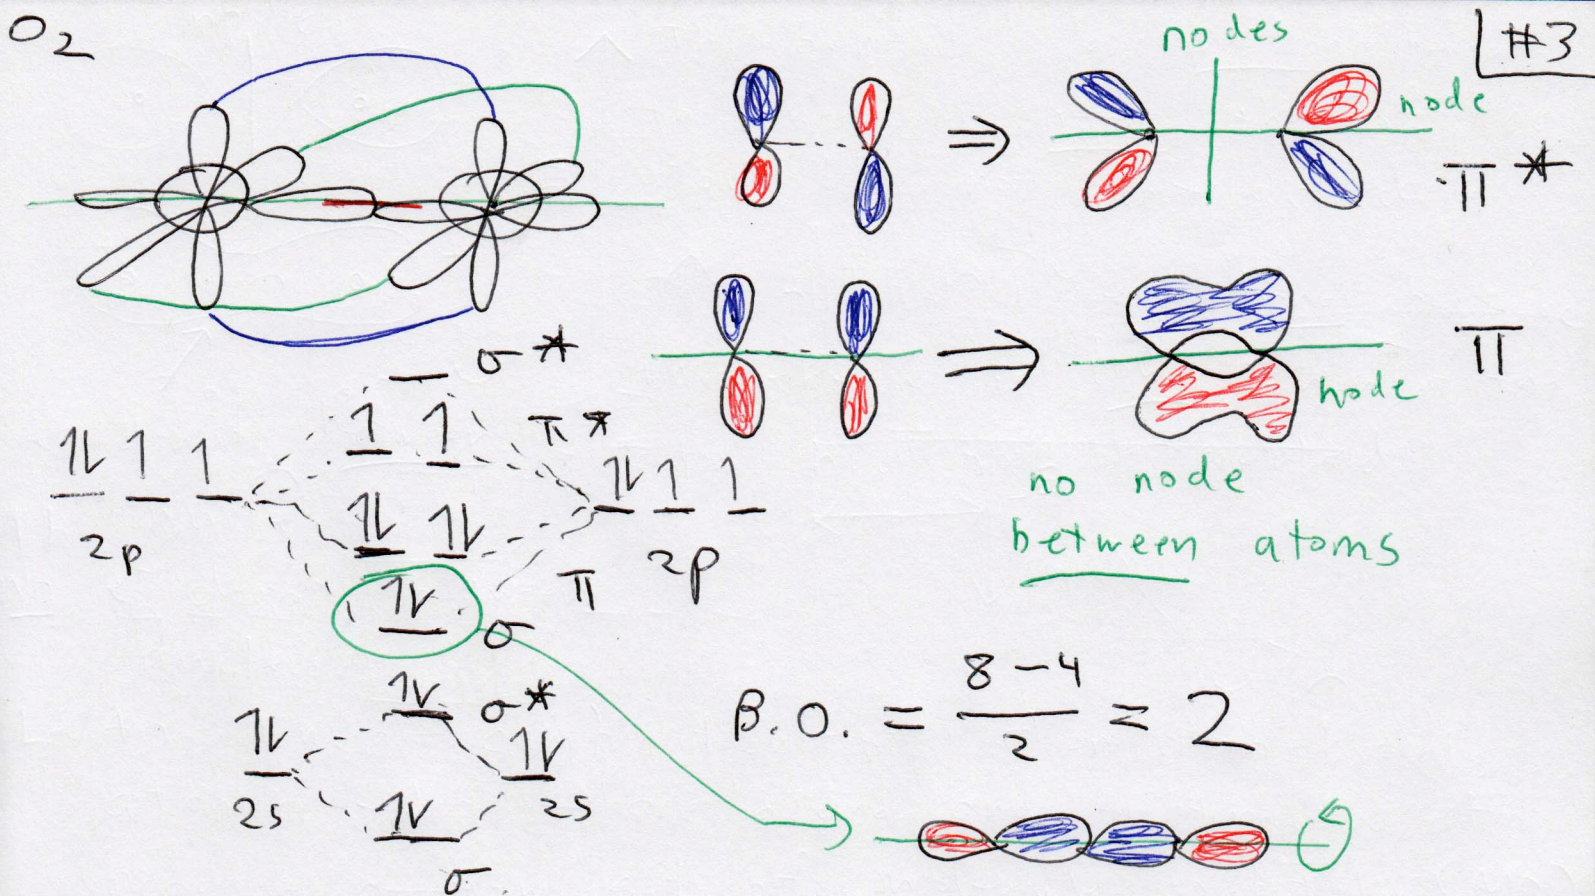 O2
#3
nodes
node
π*
π
node
no node
between atoms
σ*
π*
2p
2p
π
σ
σ*
2s
2s
σ
B.O. = 8-4 / 2 = 2